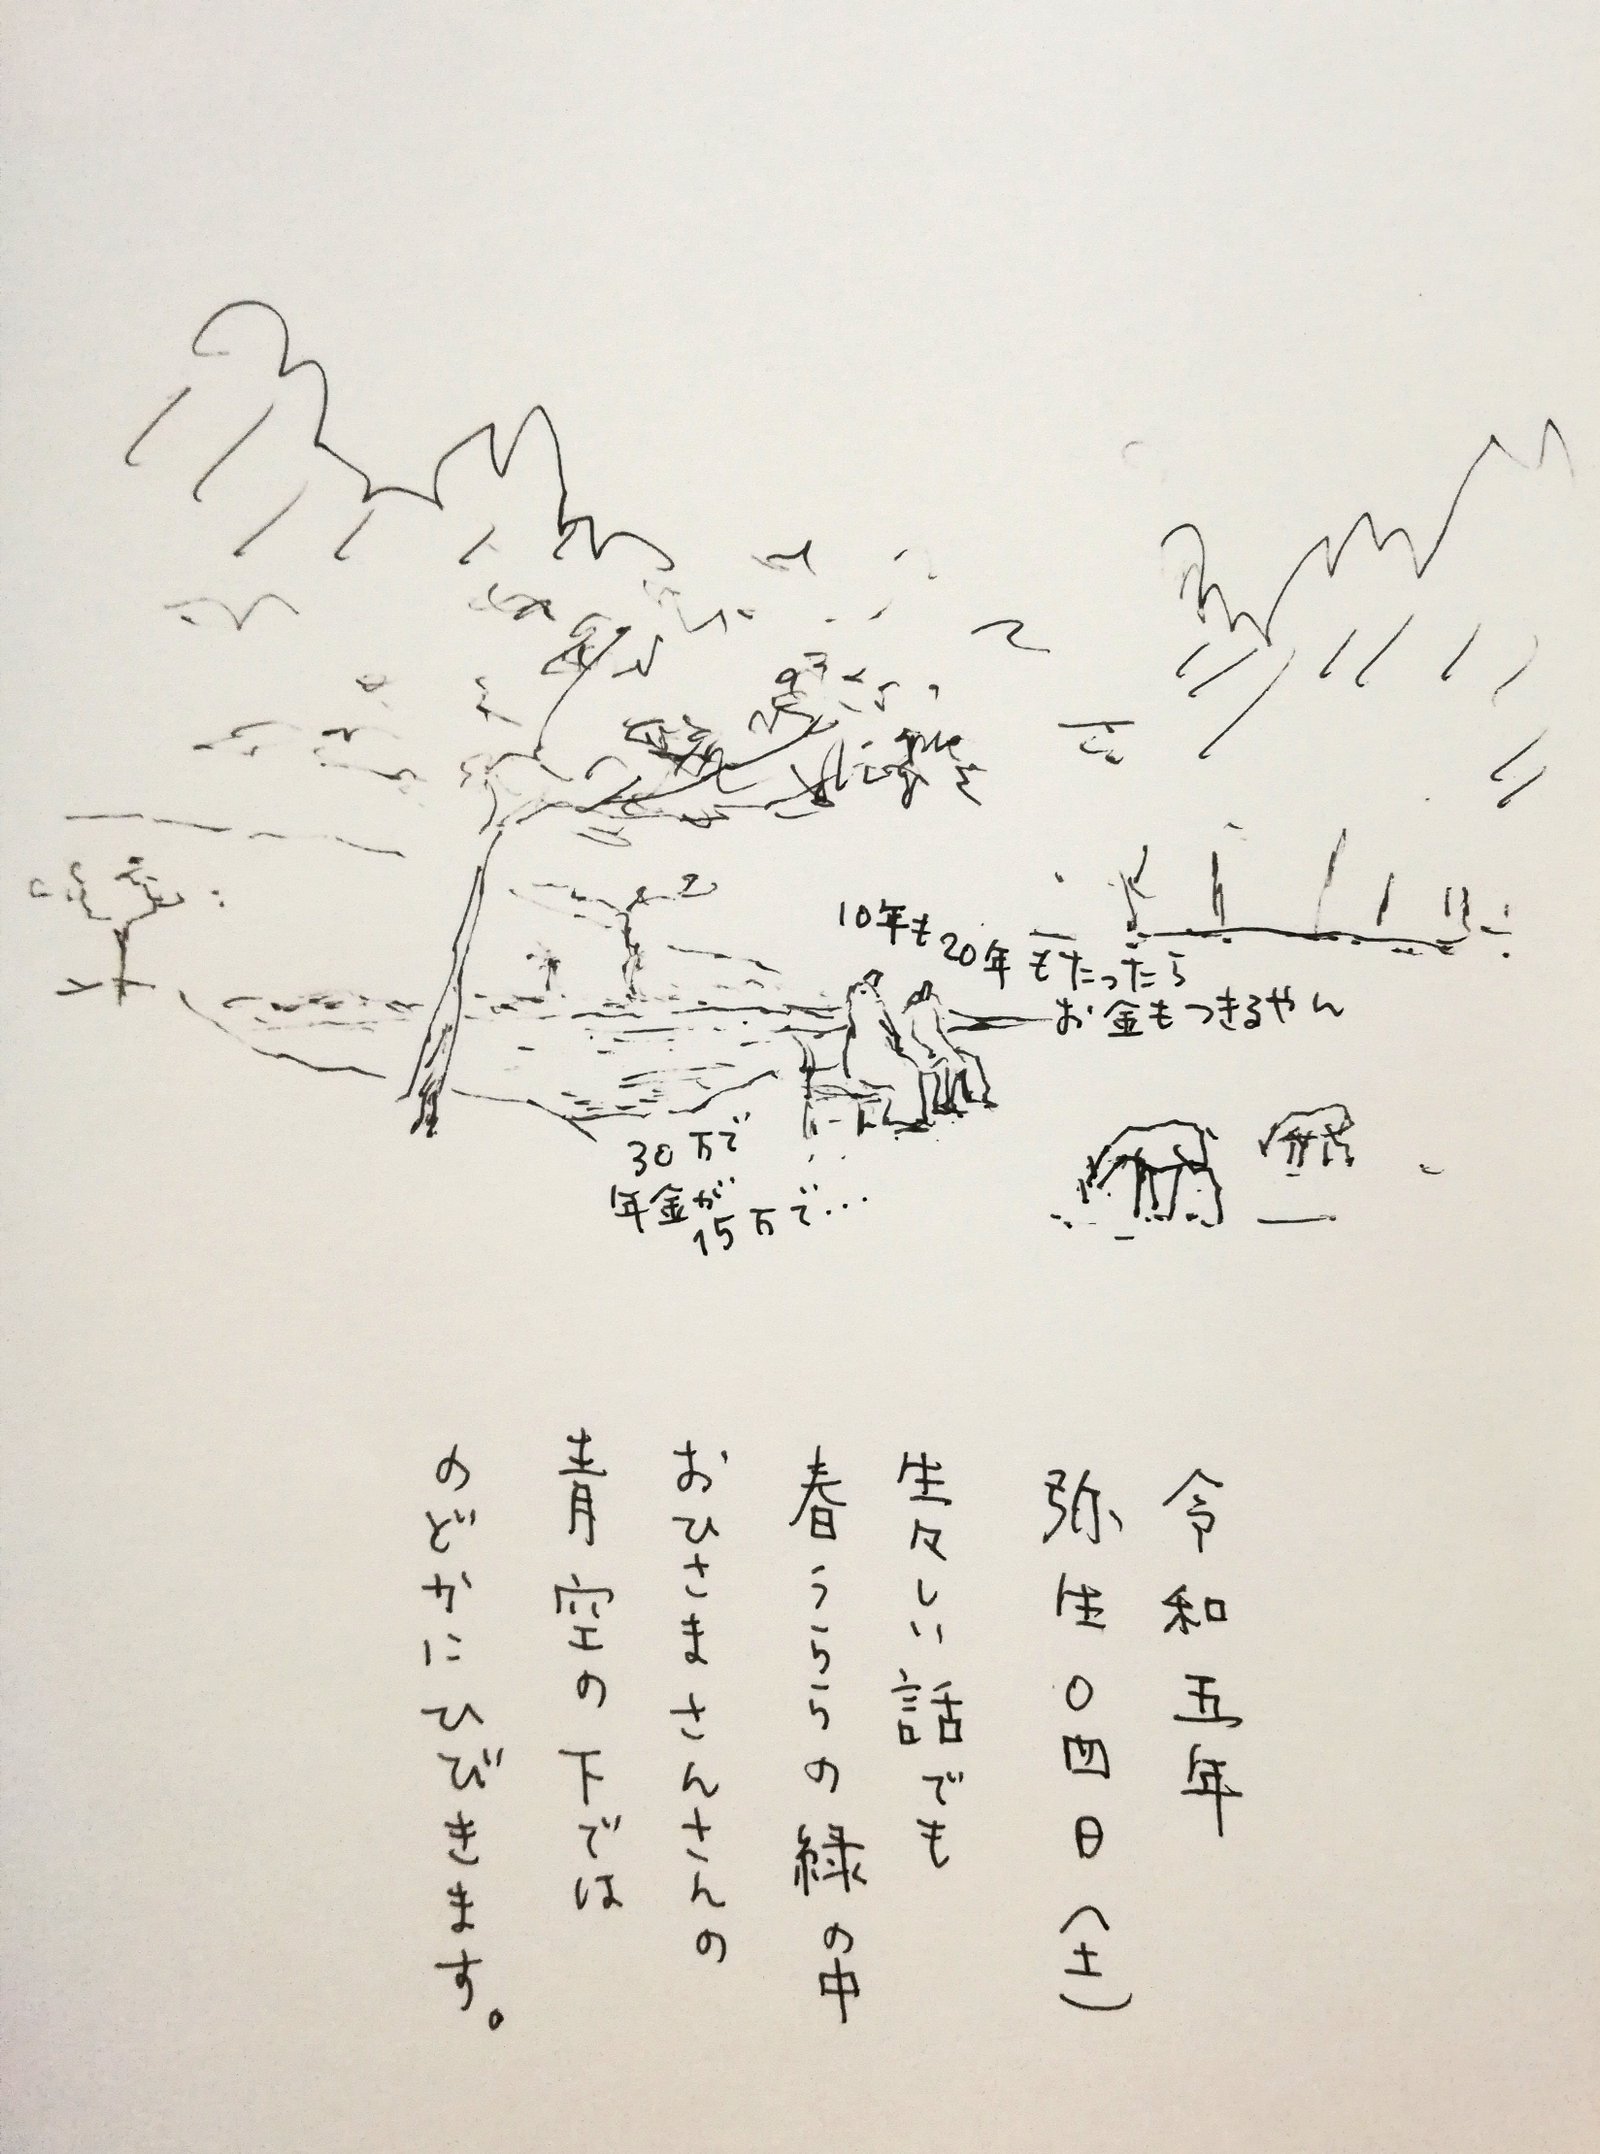 10年も
20年もたったら
お金もつきるやん
30万で
年金が
15万で…
令和五年
弥生〇四日(土)
生々しい話でも
春うららの緑の中
おひさまさんさんの
青空の下では
のどかにひびきます。